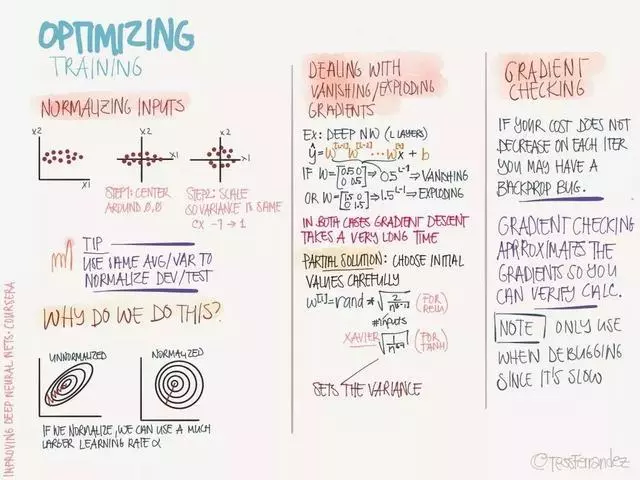 OPTIMIZING
TRAINING
NORMALIZING INPUTS
X2
X1
X2
X1
X2
X1
STEP1: CENTER
AROUND 0,0
STEP2: SCALE
SO VARIANCE IS SAME
EX -1 → 1
TIP
USE SAME AVG/VAR TO
NORMALIZE DEV/TEST
WHY DO WE DO THIS?
UNNORMALIZED
NORMALIZED
IF WE NORMALIZE, WE CAN USE A MUCH
LARGER LEARNING RATE α
IMPROVING DEEP NEURAL NETS: COURSERA
DEALING WITH
VANISHING/EXPLODING
GRADIENTS
EX: DEEP NW (L LAYERS)
ŷ = W[L-1] W[L-2] ... W[1]X + b
IF W = [0.5 0 0 0.5] ⇒ 0.5^L-1 ⇒ VANISHING
OR W = [1.5 0 0 1.5] ⇒ 1.5^L-1 ⇒ EXPLODING
IN BOTH CASES GRADIENT DESCENT
TAKES A VERY LONG TIME
PARTIAL SOLUTION: CHOOSE INITIAL
VALUES CAREFULLY
W[l] = rand * √2/n[l-1] (FOR RELU)
#INPUTS
XAVIER √1/n[l-1] (FOR TANH)
SETS THE VARIANCE
GRADIENT
CHECKING
IF YOUR COST DOES NOT
DECREASE ON EACH ITER
YOU MAY HAVE A
BACKPROP BUG.
GRADIENT CHECKING
APPROXIMATES THE
GRADIENTS SO YOU
CAN VERIFY CALC.
NOTE ONLY USE
WHEN DEBUGGING
SINCE IT'S SLOW
©TessFerrandez